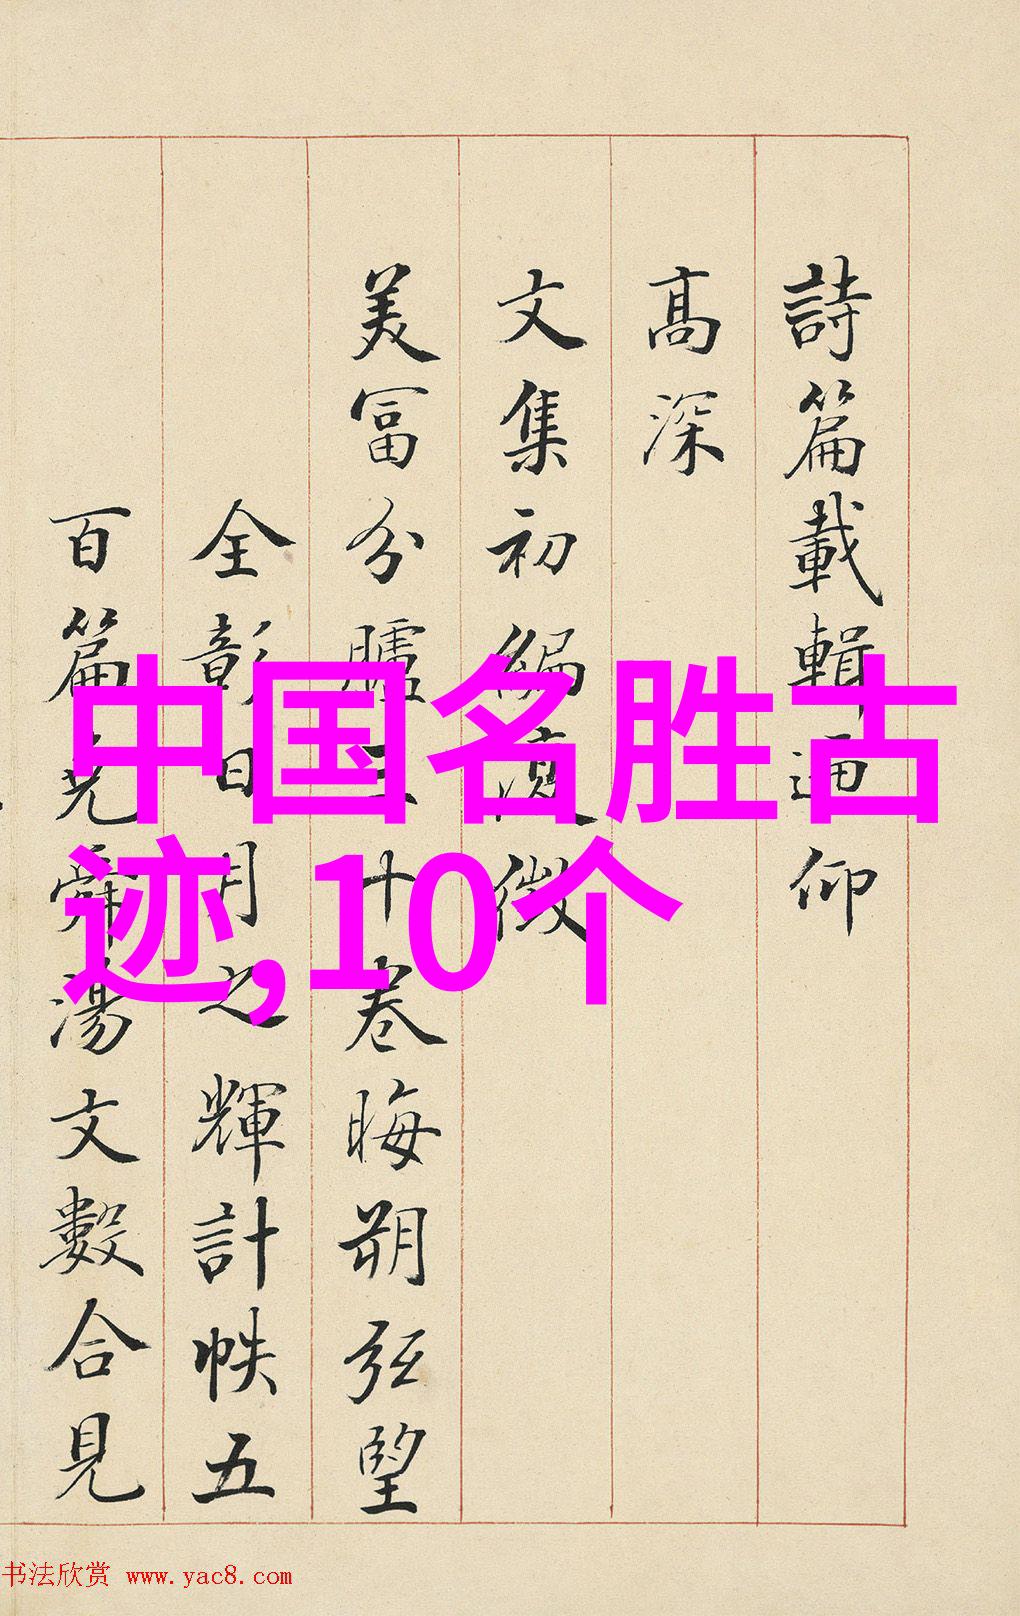 詩篇載輯通仰
高深
文集初編復徴
美富分臚三十卷晦朔弦望
全彰日月之輝計帙五
百篇堯舜湯文數合見
中国名胜古
迹,10个
书法欣赏 www.yac8.com